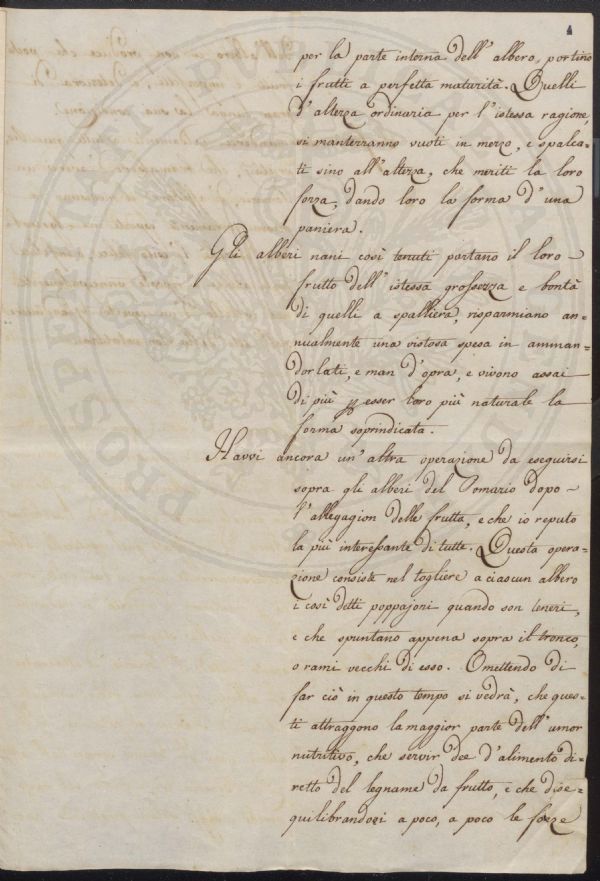 4
per la parte interna dell'albero, portino
i frutti a perfetta maturità. Quelli
d'altezza ordinaria per l'istessa ragione,
si manterranno vuoti in mezzo, e spalca-
ti sino all'altezza, che meriti la loro
forza, dando loro la forma d'una
paniera.
Gli alberi nani così tenuti portano il loro
frutto dell'istessa grossezza e bontà
di quelli a spalliera, risparmiano an-
nualmente una vistosa spesa in amman-
dorlati, e man d'opra, e vivono assai
di più p esser loro più naturale la
forma soprindicata.
Havvi ancora un'altra operazione da eseguirsi
sopra gli alberi del Pomario dopo
l'allegagion delle frutta, e che io reputo
la più interessante di tutte. Questa opera-
zione consiste nel togliere a ciascun albero
i così detti poppajoni quando son teneri,
e che spuntano appena sopra il tronco,
o rami vecchi di esso. Omettendo di
far ciò in questo tempo si vedrà, che ques-
ti attraggono la maggior parte dell'umor
nutritivo, che servir dee d'alimento di-
retto del legname da frutto, e che dise-
quilibrandosi a poco, a poco le forze